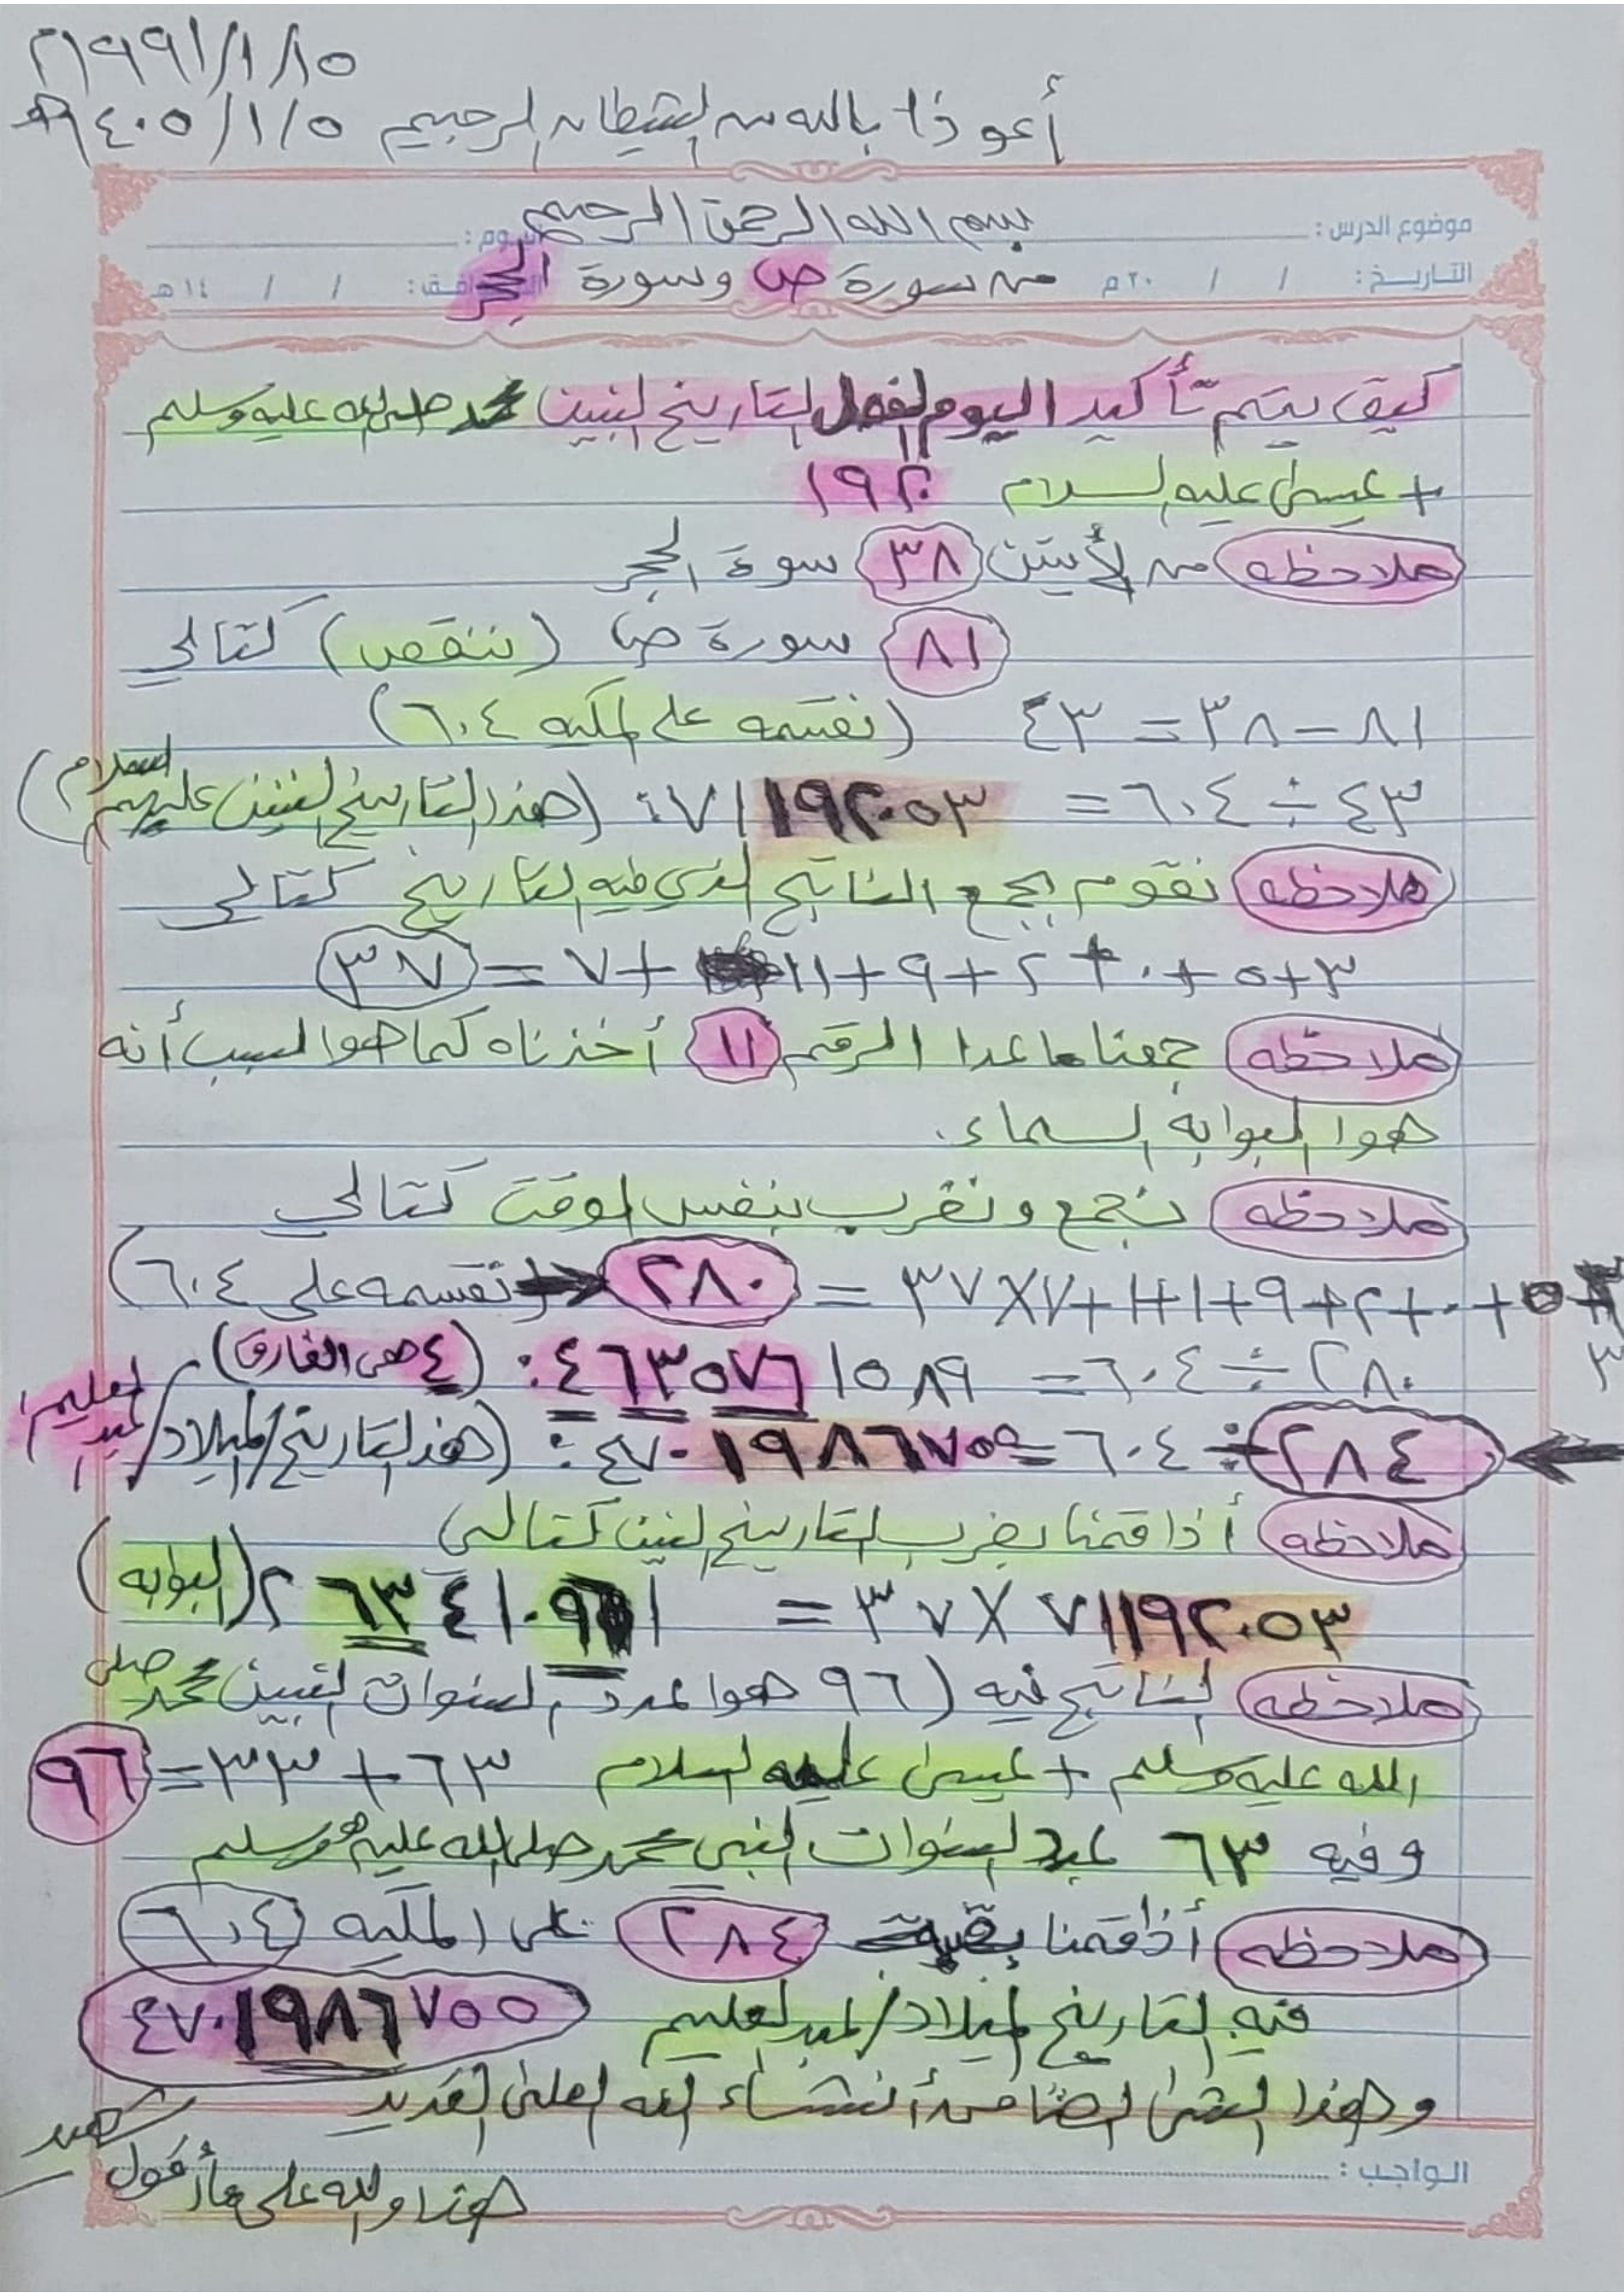 ١٩٩١/١/١٥م
أعوذا بالله من الشيطان الرجيم ١٤٠٥/١/٥هـ
موضوع الدرس : بسم الله الرحمن الرحيم اليوم :
التاريخ : / / ٢٠م من سورة ص وسورة الحجر الموافق : / / ١٤هـ
كيف يتم تأكيد اليوم لتاريخ لنبين محمد صلى الله عليه وسلم
+ عيسى عليه السلام ١٩٢٠
ملاحظه من لأيتين ٣٨ سورة الحجر
٨١ سورة ص (ننقص) كتالي
٨١ - ٣٨ = ٤٣ (نقسمه على المكيه ٦٠٤)
٤٣ ÷ ٦٠٤ = ٠٧١١٩٢٠٥٣: (هذا لتاريخ لنبين عليهم السلام)
ملاحظه نقوم بجمع الناتج لذي فيه لتاريخ كتالي
٣+٥+٠+٢+٩+١١+٧ = ٣٧
ملاحظه جمعنا ماعدا الرقم ١١ أخذناه كما هوا لسبب أنه
هوا لبوابة لسماء.
ملاحظه نجمع ونضرب بنفس لوقت كتالي
٣+٥+٠+٢+٩+١+١+٧×٣٧ = ٢٨٠ (نقسمه على ٦٠٤)
٢٨٠ ÷ ٦٠٤ = ٤٦٣٥٧٦١٥٨٩: (٤ هي الفارق)
٢٨٤ ÷ ٦٠٤ = ٤٧٠١٩٨٦٧٥٥: (هذا لتاريخ/لميلاد/عبد لعليم)
ملاحظه أذا قمنا بضرب لتاريخ لنبين كتالي
٧١١٩٢٠٥٣ × ٣٧ = ٢٦٣٤١٠٩٦١ (البوابه)
ملاحظه لناتج فيه (٩٦ هوا لسنوات لنبين محمد صلى
الله عليه وسلم + عيسى عليه لسلام ٦٣ + ٣٣ = ٩٦
وفيه ٦٣ عدد لسنوات لنبي محمد صلى الله عليه وسلم
ملاحظه أذا قمنا ٢٨٤ على المكيه ٦٠٤
فيه لتاريخ لميلاد/عبد لعليم ٤٧٠١٩٨٦٧٥٥
وهذا أنشاء الله لعلى لقدير
الواجب : هذا والله على مأأقول شهيد